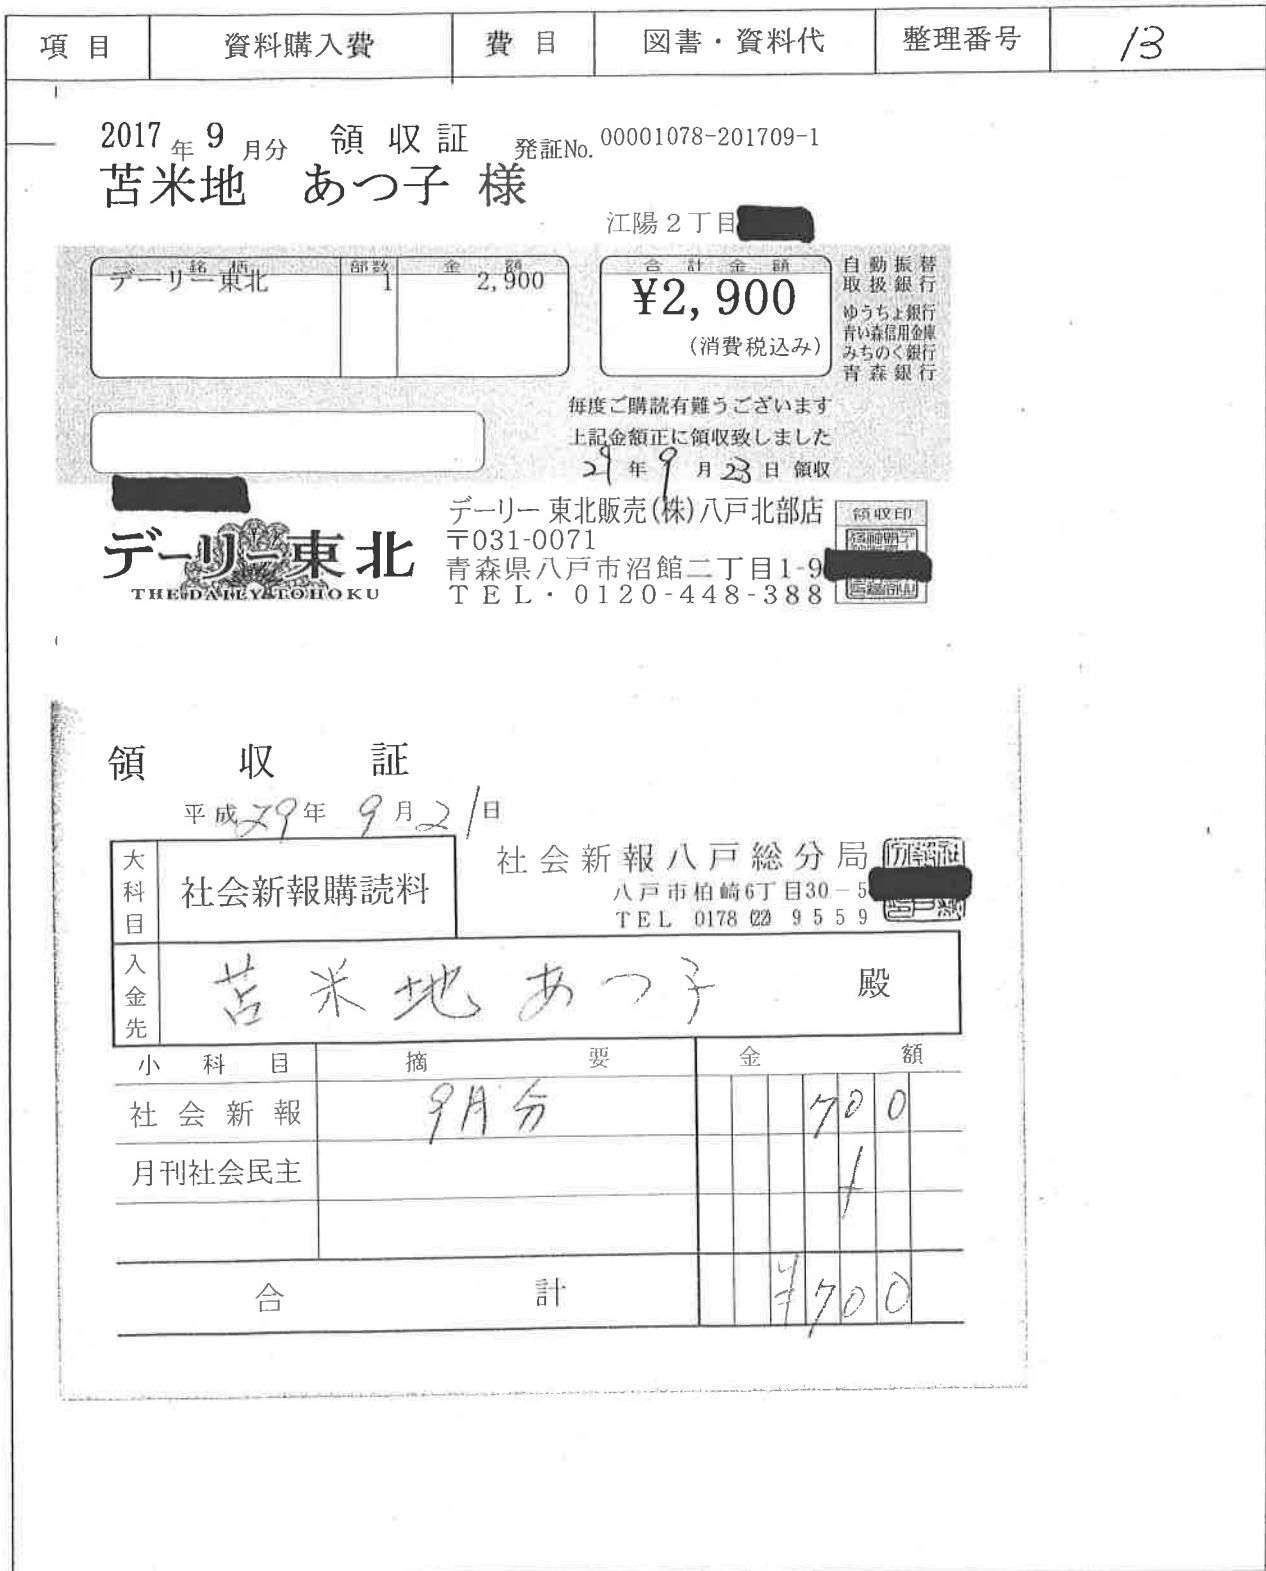 項目 資料購入費 費目 図書・資料代 整理番号 13
2017年9月分 領収証 発証No. 00001078-201709-1
苫米地 あつ子 様
江陽2丁目
銘柄 部数 金額 合計金額
デーリー東北 1 2,900 ¥2,900
(消費税込み)
自動振替
取扱銀行
ゆうちょ銀行
青い森信用金庫
みちのく銀行
青森銀行
毎度ご購読有難うございます
上記金額正に領収致しました
29年9月23日 領収
デーリー東北
THE DAILY TOHOKU
デーリー東北販売(株)八戸北部店
〒031-0071
青森県八戸市沼館二丁目1-9
TEL・0120-448-388
領収印
領収証
平成29年9月21日
大科目 社会新報購読料
社会新報八戸総分局
八戸市柏崎6丁目30-5
TEL 0178(22)9559
入金先 苫米地あつ子 殿
小科目 摘要 金額
社会新報 9月分 700
月刊社会民主
合計 ¥700